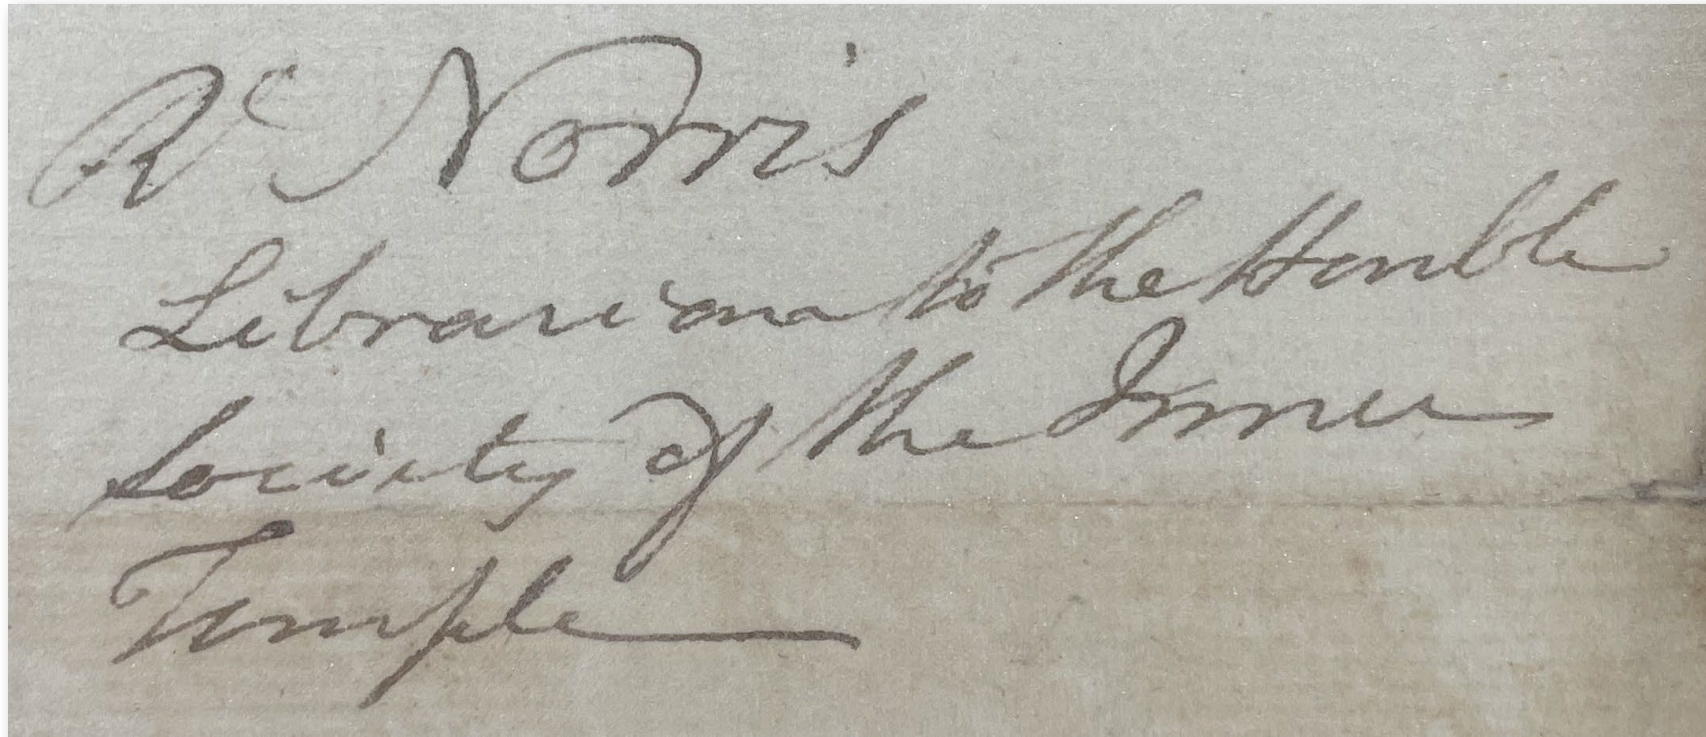 Rd Norris
Librarian to the Honble
Society of the Inner
Temple